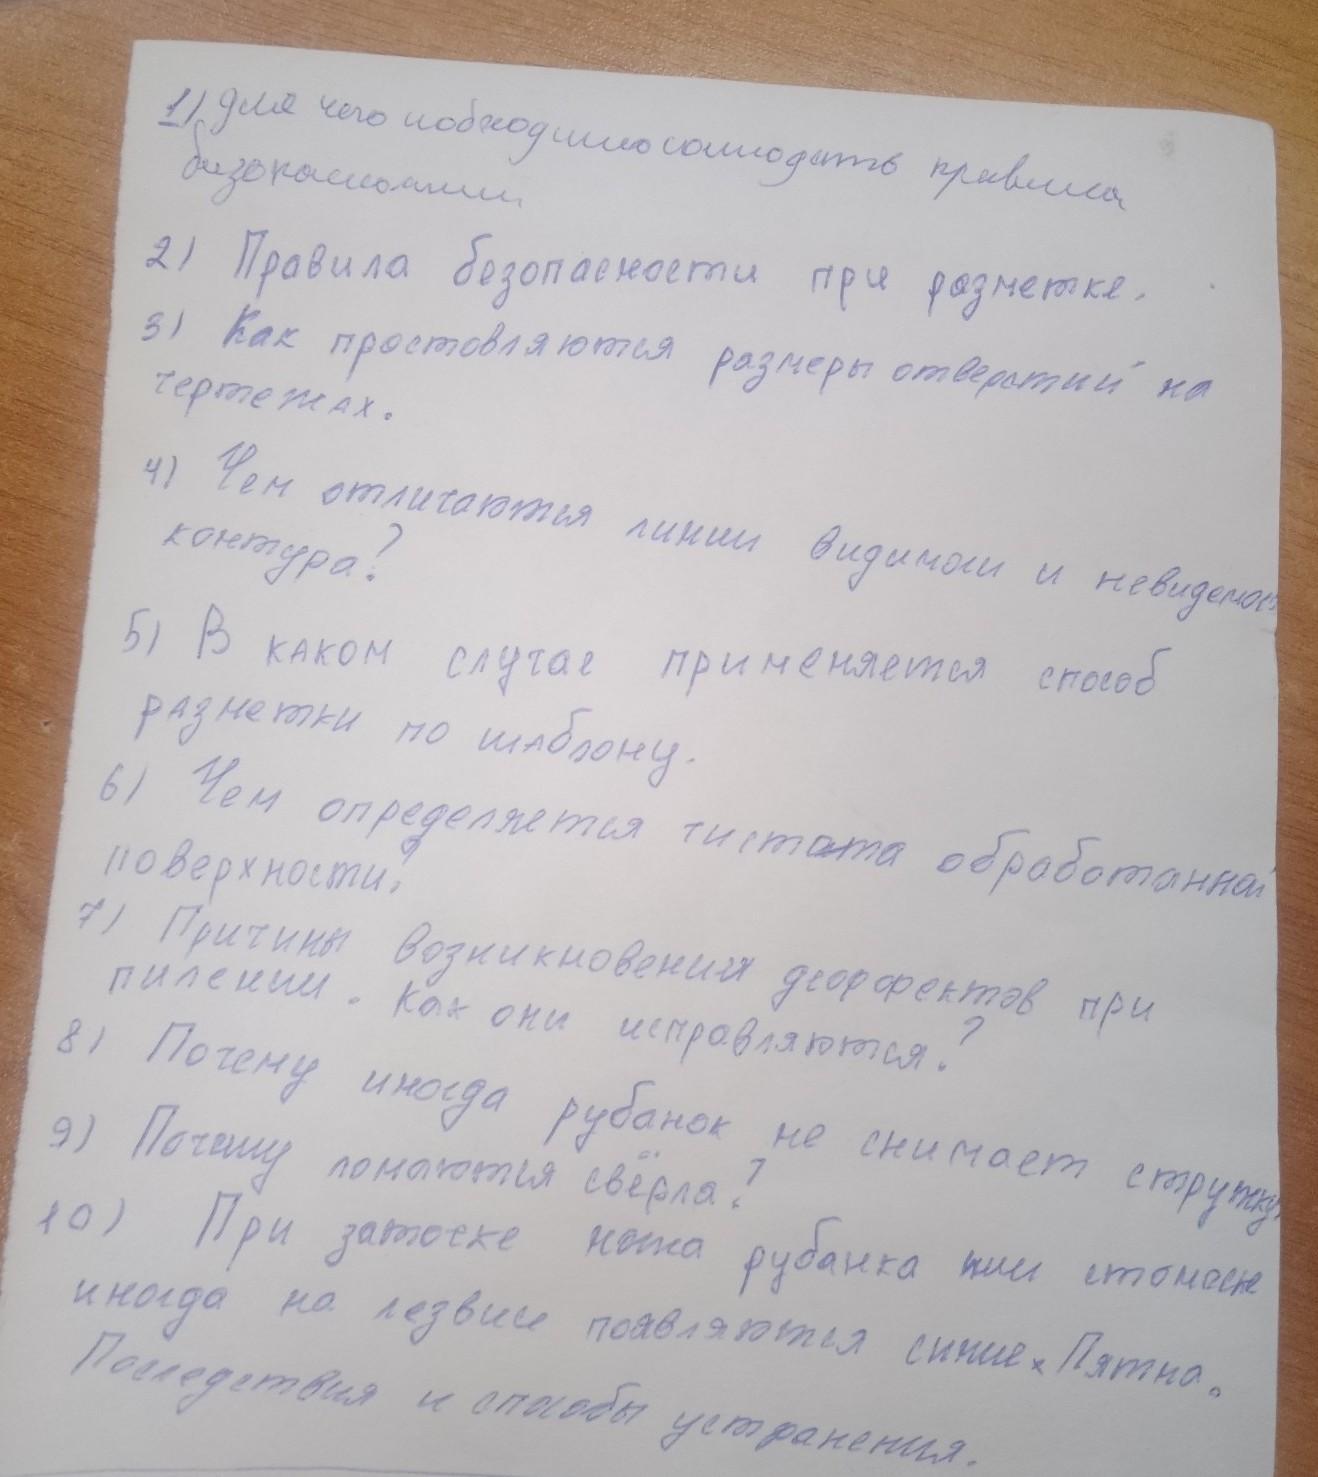 1) Для чего необходимо соблюдать правила
безопасности
2) Правила безопасности при разметке.
3) Как простовляются размеры отверстий на
чертежах.
4) Чем отличаются линии видимой и невидемой
контура?
5) В каком случае применяется способ
разметки по шаблону.
6) Чем определяется чистота обработанной
поверхности?
7) Причины возникновения деффектов при
пилении. Как они исправляются?
8) Почему иногда рубанок не снимает стружку.
9) Почему ломаются свёрла?
10) При заточке ножа рубанка или стамески
иногда на лезвии появляются синие Пятна.
Последствия и способы устранения.